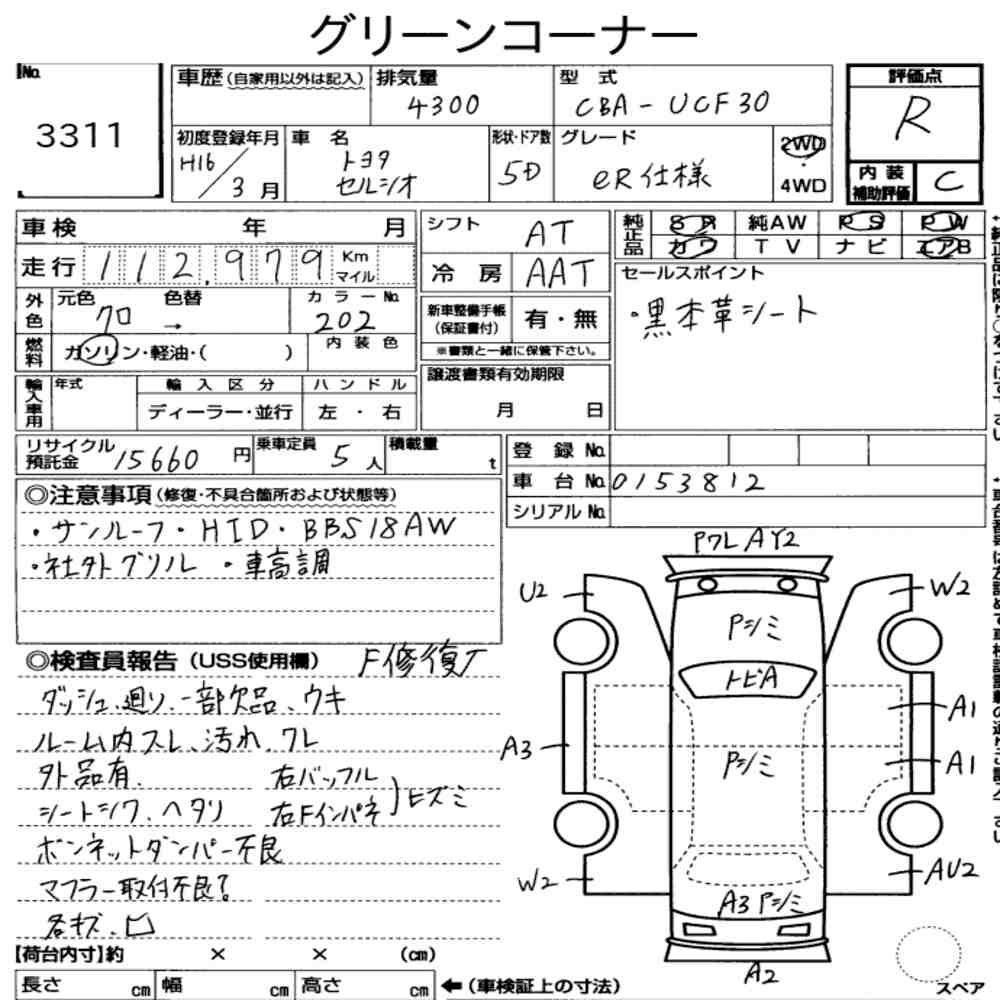 グリーンコーナー
No. 3311
車歴 (自家用以外は記入) 排気量 4300 型式 CBA-UCF30
初度登録年月 H16/3月 車名 トヨタ セルシオ 形状・ドア数 5D グレード eR仕様 2WD・4WD
評価点 R
内装補助評価 C
車検 年 月
走行 112,979 Km マイル
外色 元色 クロ 色替 → カラーNo. 202
燃料 ガソリン・軽油・( ) 内装色
輸入車用 年式 輸入区分 ディーラー・並行 ハンドル 左・右
シフト AT
冷房 AAT
新車整備手帳(保証書付) 有・無
※書類と一緒に保管下さい。
譲渡書類有効期限 月 日
純正品 SR 純AW PS PW
カワ TV ナビ エアB
セールスポイント
・黒本革シート
リサイクル預託金 15660円 乗車定員 5人 積載量 t
登録No.
車台No. 0153812
シリアルNo.
◎注意事項 (修復・不具合箇所および状態等)
・サンルーフ・HID・BBS18AW
・社外グリル ・車高調
◎検査員報告 (USS使用欄) F修復歴
ダッシュ廻り、一部欠品、ウキ
ルーム内スレ、汚れ、ワレ
外品有、 右バッフル
シートシワ、ヘタリ 右Fインパネ )ヒズミ
ボンネットダンパー不良
マフラー取付不良?
各キズ、凹
【荷台内寸】約 × × (cm)
長さ cm 幅 cm 高さ cm ←(車検証上の寸法)
PワレAY2
U2
W2
Pシミ
トビA
A1
A3
Pシミ
A1
W2
AU2
A3 Pシミ
A2
スペア